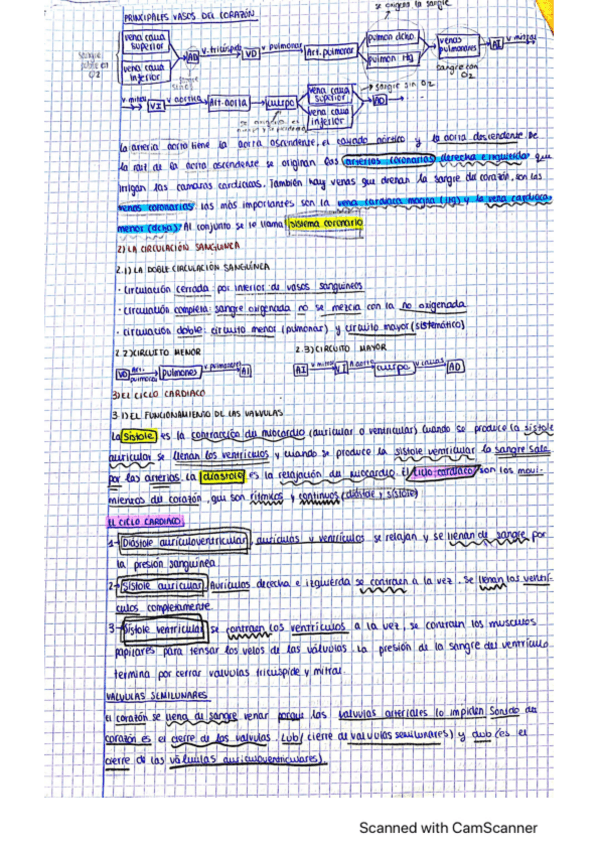 se oxigena la sangre
PRINCIPALES VASOS DEL CORAZÓN
vena cava superior
vena cava inferior
AD
v. tricúspide
VD
v pulmonar
Art. pulmonar
pulmon dcho
pulmon Izq
venas pulmonares
AI
v mitral
sangre con O2
v mitral
VI
v aortica
Art. aorta
cuerpo
vena cava superior
vena cava inferior
sangre sin O2
AD
La arteria aorta tiene la aorta ascendente, el cayado aórtico y la aorta descendente. De
la raiz de la aorta ascendente se originan las arterias coronarias derecha e izquierda que
irrigan las camaras cardiacas. También hay venas que drenan la sangre del corazón, son las
venas coronarias las más importantes son la vena cardiaca magna (izq) y la vena cardiaca
menor (dcha). Al conjunto se le llama sistema coronario
2) LA CIRCULACIÓN SANGUINEA
2.1) LA DOBLE CIRCULACIÓN SANGUÍNEA
· circulación cerrada por interior de vasos sanguineos
· circulación completa: sangre oxigenada no se mezcla con la no oxigenada
· circulación doble: circuito menor (pulmonar) y circuito mayor (sistemático)
2.2) CIRCUITO MENOR 2.3) CIRCUITO MAYOR
VD Art. pulmonar pulmones v pulmonar AI
AI v mitral VI A aorta cuerpo v cavas AD
3) EL CICLO CARDIACO
3.1) EL FUNCIONAMIENTO DE LAS VALVULAS
La sístole es la contracción del miocardio (auricular o ventricular) cuando se produce la sístole
auricular se llenan los ventriculos y cuando se produce la sístole ventricular la sangre sale
por las arterias. La diastole es la relajación del miocardio. El ciclo cardiaco son los movi-
mientos del corazón, que son rítmicos y continuos (diástole y sístole)
EL CICLO CARDIACO
1- Diástole auriculoventricular, auriculas y ventriculos se relajan y se llenan de sangre por
la presión sanguinea
2- Sístole auricular Auriculas derecha e izquierda se contraen a la vez. Se llenan los ventri-
culos completamente.
3- Sístole ventricular se contraen los ventriculos a la vez, se contraen los musculos
papilares para tensar los velos de las válvulas. La presión de la sangre del ventriculo
termina por cerrar valvulas tricuspide y mitral.
VALVULAS SEMILUNARES
El corazón se llena de sangre venar porque las valvulas arteriales lo impiden Sonido del
corazón es el cierre de las valvulas. Lub (cierre de valvulas semilunares) y dub (es el
cierre de las válvulas auriculoventriculares).
Scanned with CamScanner